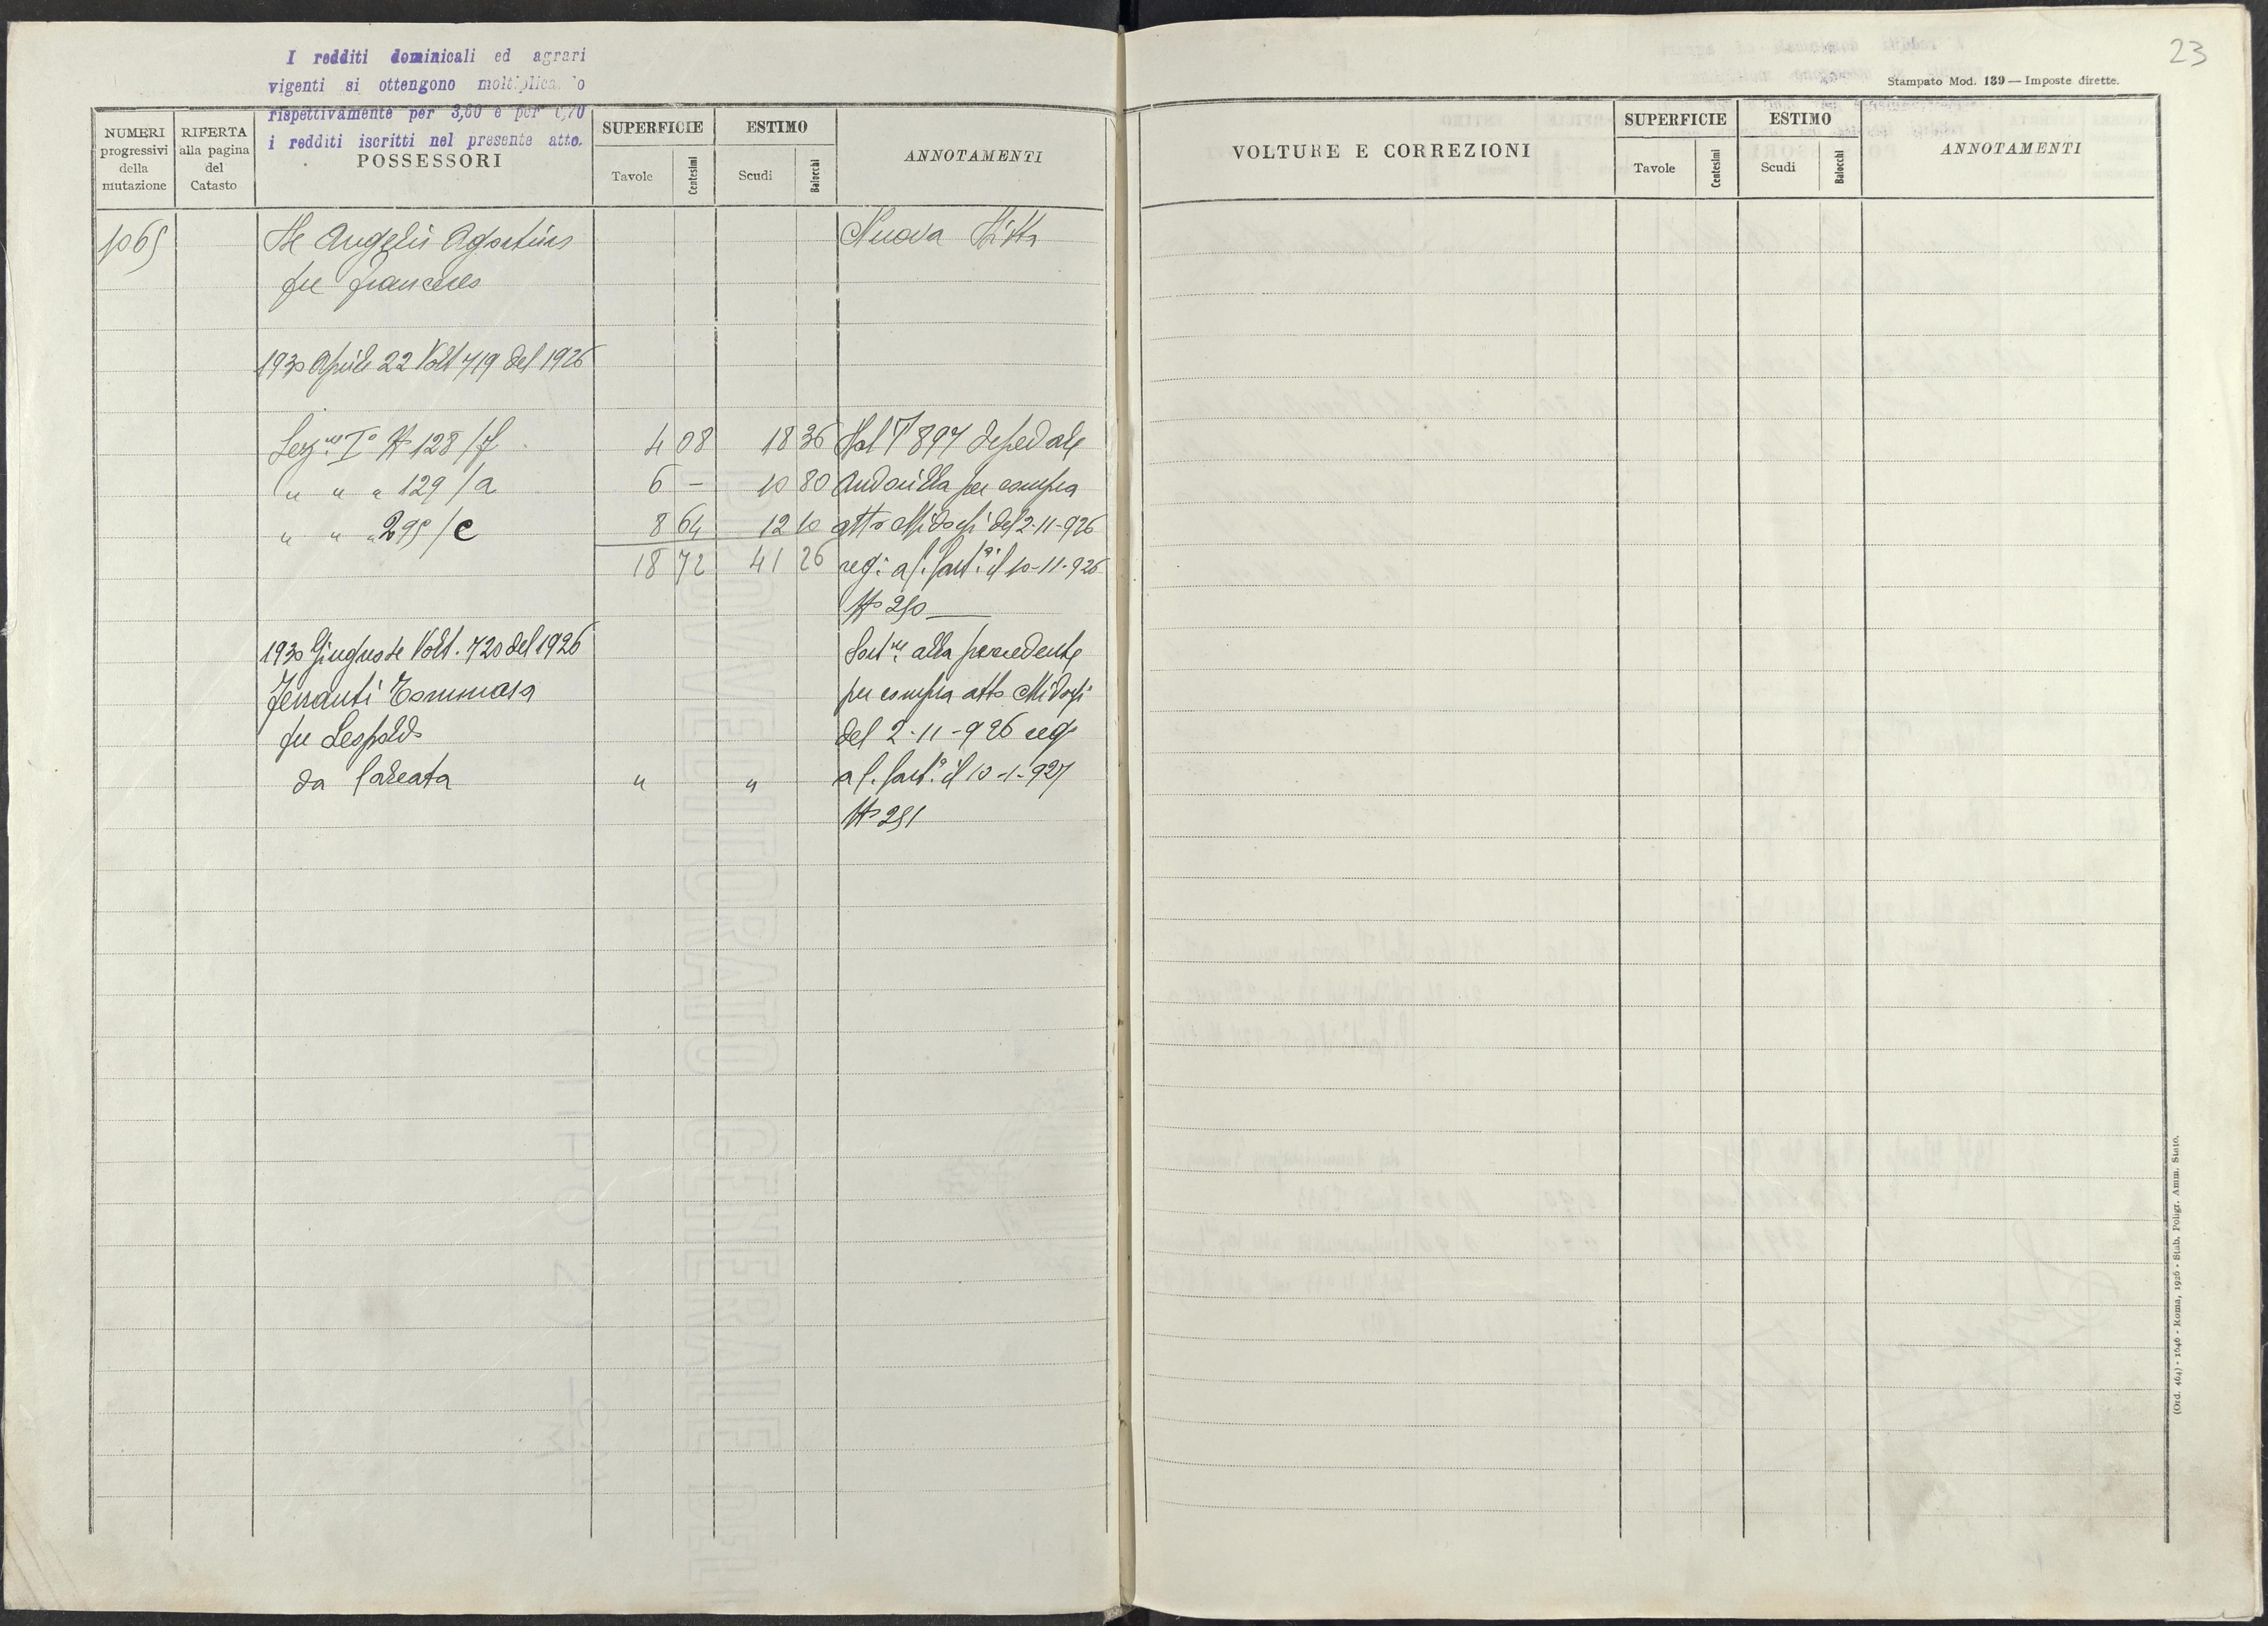 I redditi dominicali ed agrari
vigenti si ottengono moltiplicando
rispettivamente per 3,60 e per 0,70
i redditi iscritti nel presente atto.
NUMERI
progressivi
della
mutazione
RIFERTA
alla pagina
del
Catasto
POSSESSORI
SUPERFICIE
Tavole
Centesimi
ESTIMO
Scudi
Baiocchi
ANNOTAMENTI
1065 De Angelis Agostino Nuova Ditta
fu Francesco
1930 Aprile 22 Volt 719 del 1926
Sez.ne I° N° 128/f 4 08 18 36 Dal T 897
" " " 129/a 6 - 10 80 per compra
" " " 295/c 8 64 12 10 atto del 2-11-926
18 72 41 26 reg. a il 10-11-926
N° 250
1930 Giugno Volt. 720 del 1926 alla precedente
Ferranti Tommaso per compra atto
fu Leopoldo del 2-11-926 reg
da " " a il 10-1-927
N° 251
23
Stampato Mod. 139 — Imposte dirette.
VOLTURE E CORREZIONI
SUPERFICIE
Tavole
Centesimi
ESTIMO
Scudi
Baiocchi
ANNOTAMENTI
(Ord. 464) - 1646 - Roma, 1926 - Stab. Poligr. Amm. Stato.